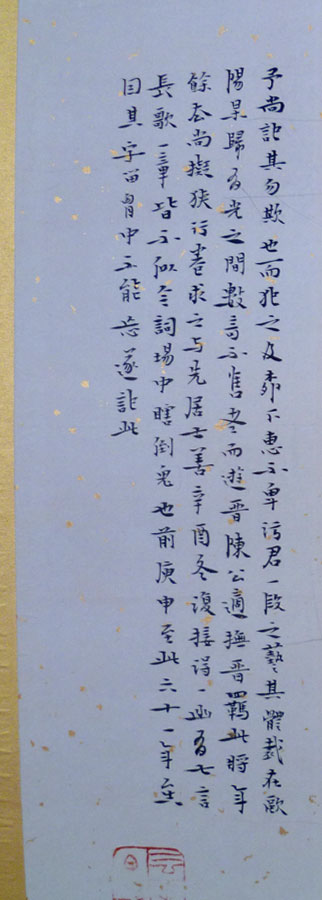 予尚訝其勿欺也而非之及邪下惠不卑污君一段之藝其體裁在歐
陽早歸有光之間數奇不售老而遊晉陳公適撫晉四羈此時年
餘在尚擬狹行卷求之与先居士善辛酉冬復接得一函有七言
長歌一章皆不似今詞場中瞎倒鬼也前庚申至此六十一年矣
因其字留胷中不能忘遂記此